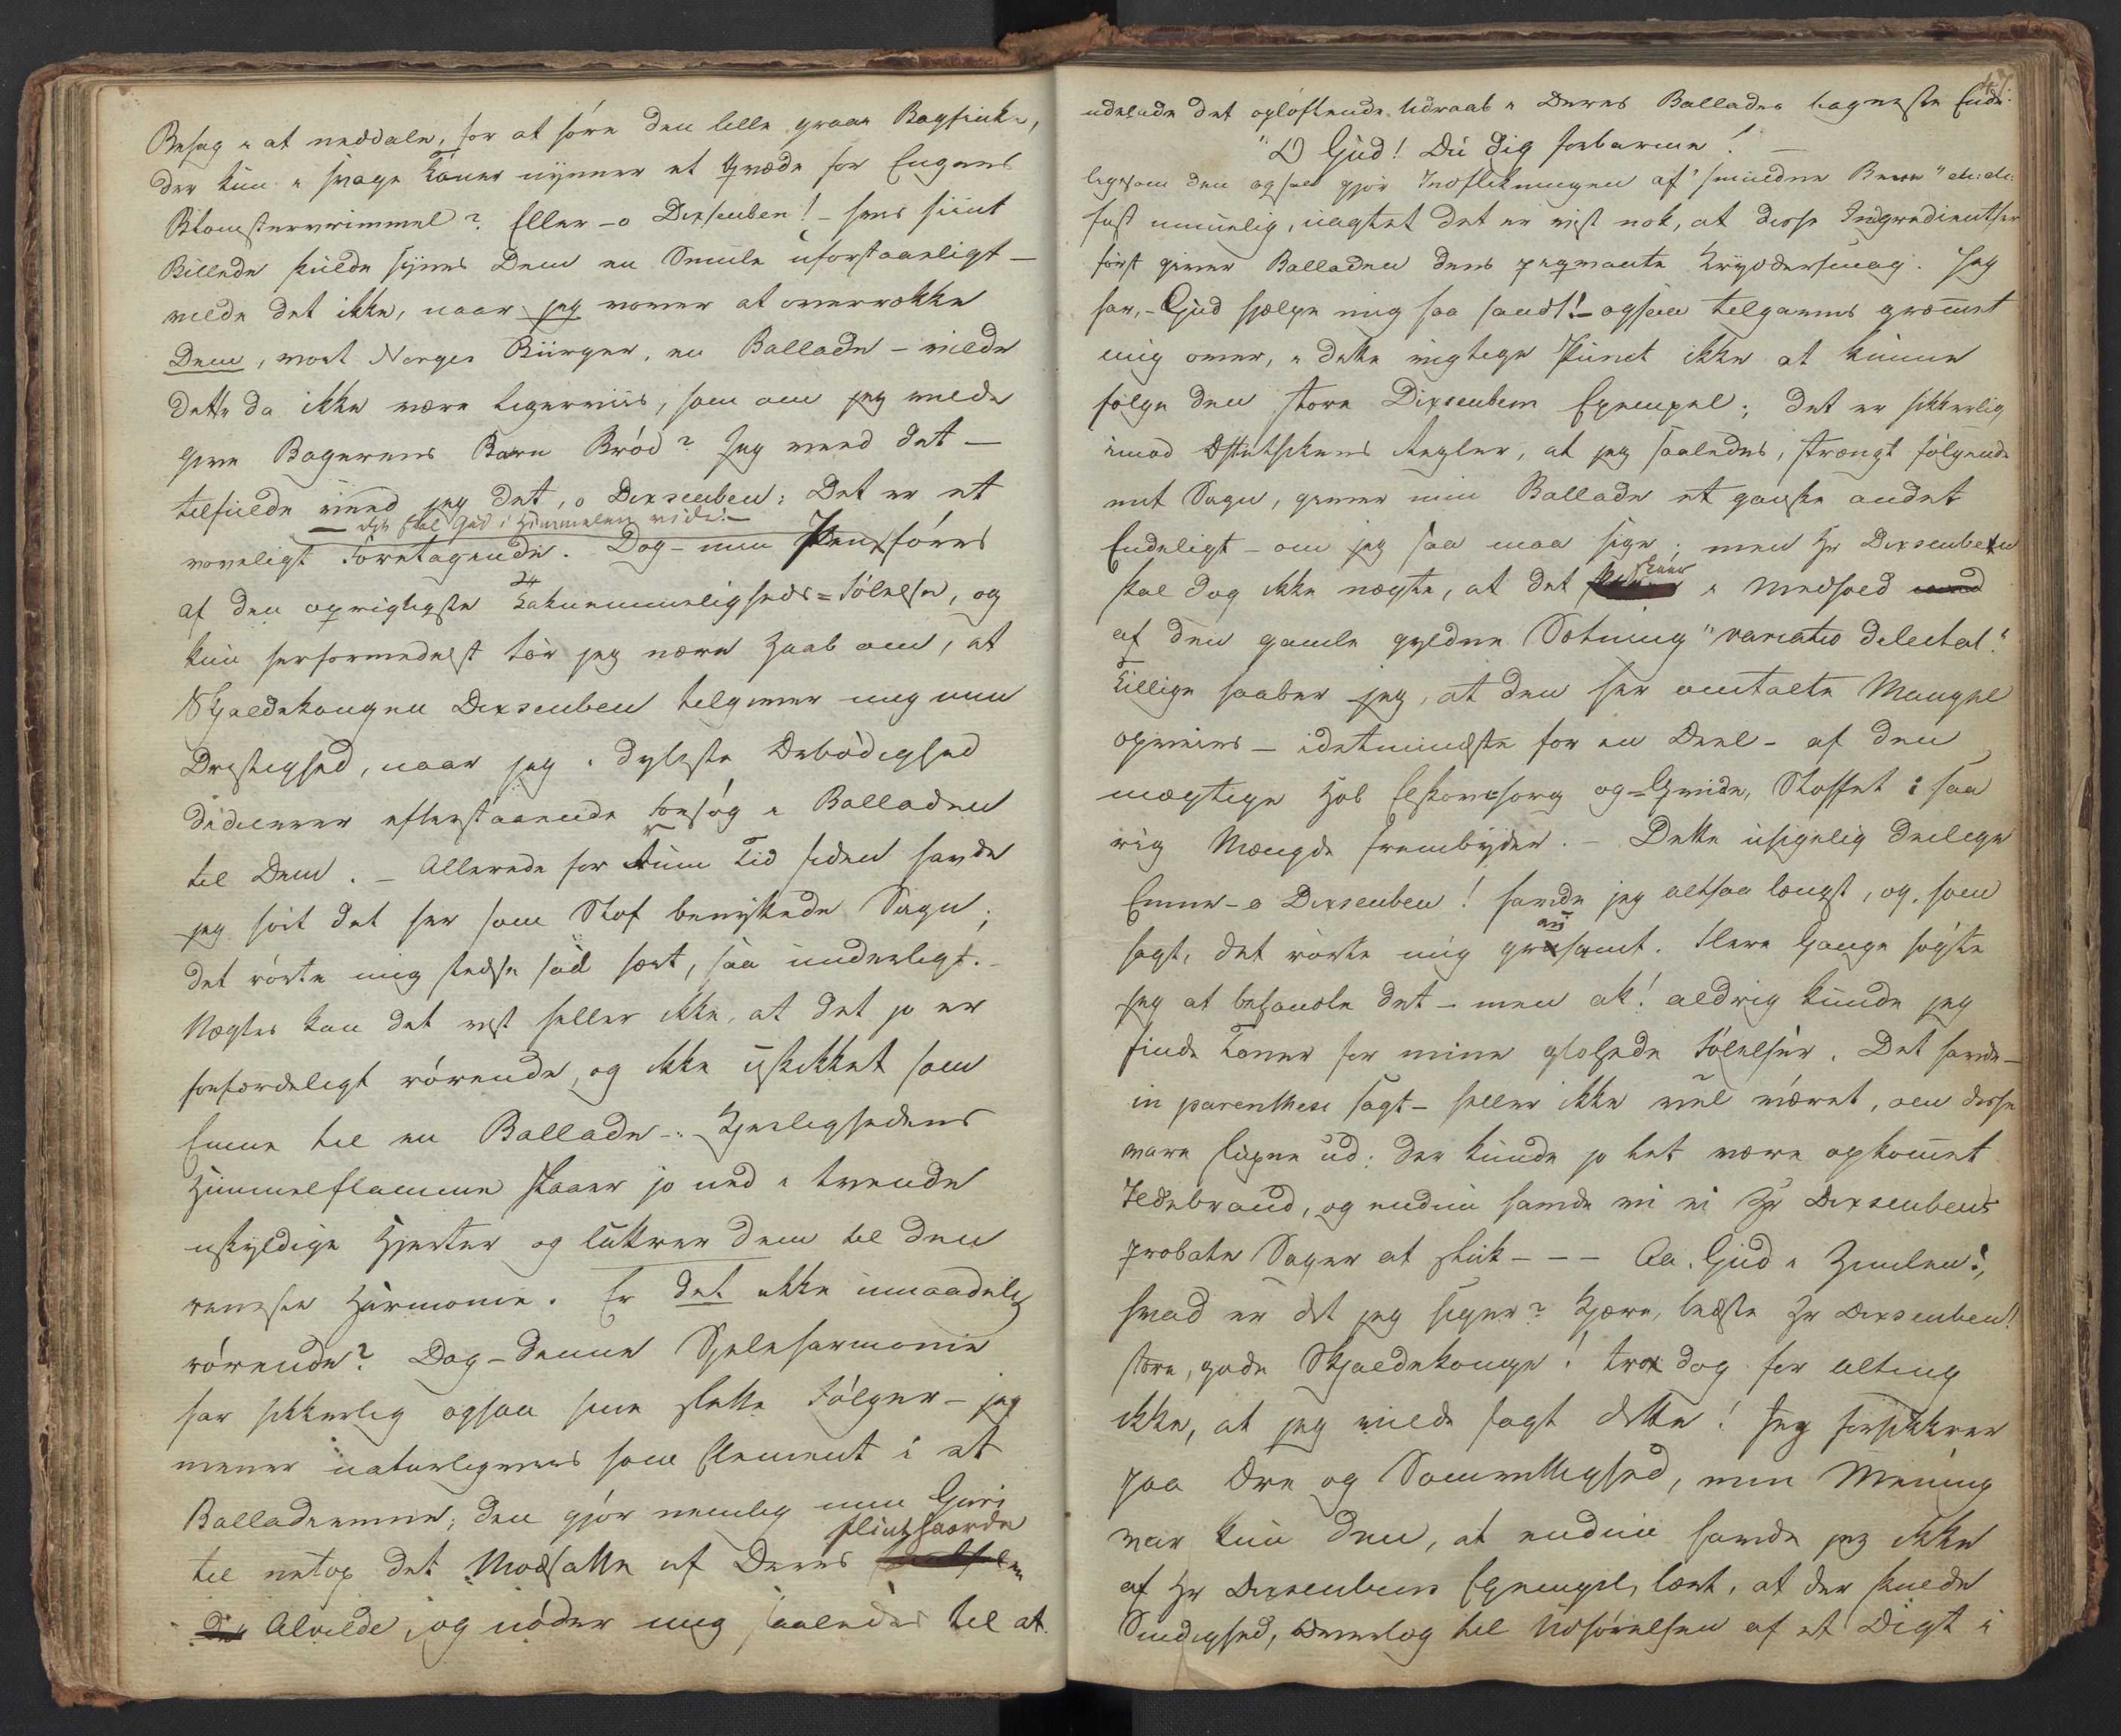 Besøg i at neddale, for at høre den lille graae Bogfinke,
der kun i svage Toner nynner et Qvæde for Engens
Blomstervrimmel? Eller – o Dixseuben! – hvis hiint
Billede skulde synes Dem en Smule uforstaaeligt –
vilde det ikke, naar jeg vover at overrække
Dem, vort Norges Bürger, en Ballade – vilde
dette da ikke være ligerviis, som om jeg vilde
give Bagerens Barn Brød? Jeg veed det –
tilfulde veed jeg det, o Dixseuben: Det er et
– det skal Gud i Himmelen vide! –
voveligt Foretagende. Dog – min Pen føres
af den oprigtigste Taknemmeligheds-Følelse, og
kun herformedelst tør jeg nære Haab om, at
Skjaldekongen Dixseuben tilgiver mig min
Dristighed, naar jeg i dybeste Ærbødighed
dedicerer efterstaaende Forsøg i Balladen
til Dem. – Allerede for rum Tid siden havde
jeg hørt det her som Stof benyttede Sagn;
det rørte mig stedse saa sært, saa underligt. –
Nægtes kan det vist heller ikke, at det jo er
forfærdeligt rørende, og ikke uskikket som
Emne til en Ballade –: Kjerlighedens
Himmelflamme slaaer jo ned i tvende
uskyldige Hjerter og lutrer dem til den
reneste Harmonie. Er det ikke umaadelig
rørende? Dog – denne Sjeleharmonie
har sikkerlig ogsaa sine slette Følger – jeg
mener naturligviis som Element i et
Balladeemne; den gjør nemlig min Guri
til netop det Modsatte af Deres flinthaarde
Alvilde, og nøder mig saaledes til at
udelade det opløftende Udraab i Deres Ballades bageste Ende:
"O Gud! Du dig forbarme!" –
ligesom den ogsaa gjør Indflikningen af "smuldne Been" etc: etc:
fast umuelig, uagtet det er vist nok, at disse Ingredientser
først giver Balladen dens peqvante Krydersmag. Jeg
har, – Gud hjælpe mig saa sandt! – ogsaa tilgavns græmmet
mig over, i dette vigtige Punct ikke at kunne
følge den store Dixseubens Exempel; det er sikkerlig
imod Æsthetikens Regler, at jeg saaledes, strængt følgende
mit Sagn, giver min Ballade et ganske andet
Endeligt – om jeg saa maa sige; men Hr Dixseuben
skal dog ikke nægte, at det skeer i Medhold
af den gamle gyldne Sætning "variatio delectat."
Tillige haaber jeg, at den her omtalte Mangel
opveies – idetmindste for en Deel – af den
mægtige Hob Elskovssorg og -Qvide, Stoffet i saa
rig Mængde frembyder. – Dette usigelig deilige
Emne – o Dixseuben! havde jeg altsaa længst, og, som
sagt, det rørte mig grusomt. Flere Gange søgte
jeg at behandle det – men ak! aldrig kunde jeg
finde Toner for mine glohede Følelser. Det havde –
in parenthesi sagt – heller ikke vel været, om disse
vare slupne ud; der kunde jo let være opkommet
Ildebrand, og endnu havde vi ei Hr Dixseubens
probate Sager at sluk – – – Aa. Gud i Himlen!,
hvad er det jeg siger? Kjære, bedste Hr Dixseuben!
store, gode Skjaldekonge! troe dog for alting
ikke, at jeg vilde sagt dette! Jeg forsikkrer
paa Ære og Samvittighed, min Mening
var kun den, at endnu havde jeg ikke
af Hr Dixseubens Exempel, lært, at der skulde
Sindighed, til Udførelsen af et Digt i